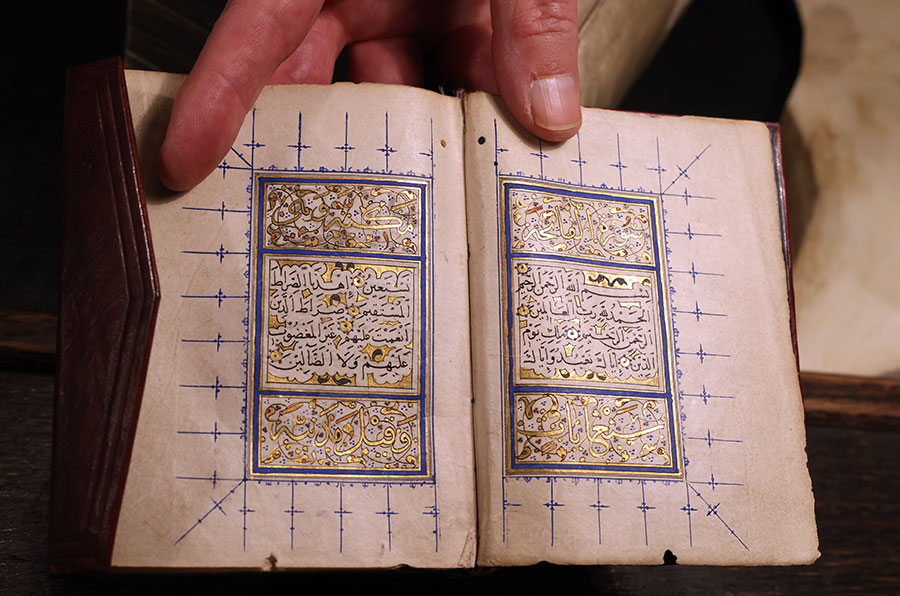 سورة الفاتحة
بسم الله الرحمن الرحيم
الحمد لله رب العالمين
الرحمن الرحيم ملك يوم
الدين اياك نعبد واياك
سبع آيات
مكية
نستعين اهدنا الصراط
المستقيم صراط الذين
انعمت عليهم غير المغضوب
عليهم ولا الضالين
وقيل مدنية